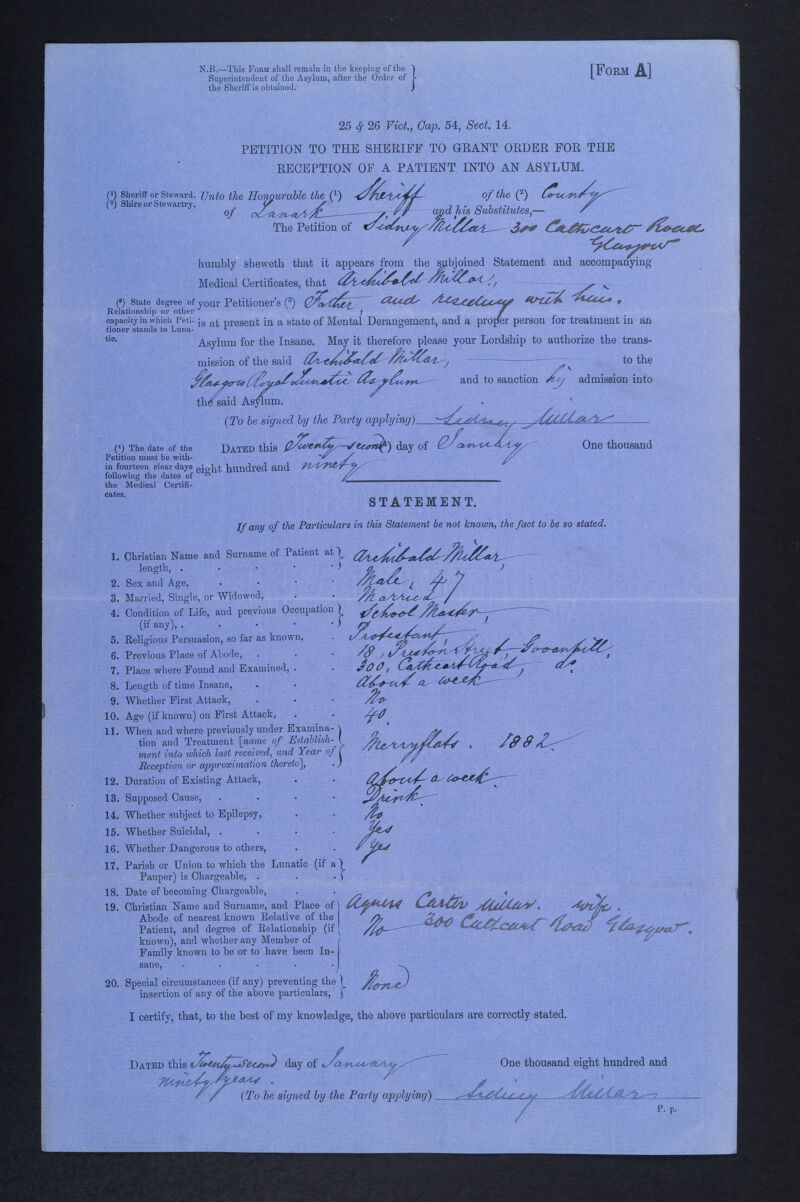 N.B.—This Form shall remain in the keeping of the
Superintendent of the Asylum, after the Order of
the Sheriff is obtained.
[Form A]
25 & 26 Vict., Cap. 54, Sect. 14.
PETITION TO THE SHERIFF TO GRANT ORDER FOR THE
RECEPTION OF A PATIENT INTO AN ASYLUM.
(¹) Sheriff or Steward.
(²) Shire or Stewartry.
Unto the Honourable the (¹) Sheriff of the (²) County
of Lanark and his Substitutes,—
The Petition of Sidney Millar 300 Cathcart Road
Glasgow
humbly sheweth that it appears from the subjoined Statement and accompanying
Medical Certificates, that Archibald Millar,
(³) State degree of
Relationship or other
capacity in which Peti-
tioner stands to Luna-
tic.
your Petitioner's (³) Father, and residing with him.
is at present in a state of Mental Derangement, and a proper person for treatment in an
Asylum for the Insane. May it therefore please your Lordship to authorize the trans-
mission of the said Archibald Millar, to the
Glasgow Royal Lunatic Asylum and to sanction his admission into
the said Asylum.
(To be signed by the Party applying) Sidney Millar
(⁴) The date of the
Petition must be with-
in fourteen clear days
following the dates of
the Medical Certifi-
cates.
Dated this Twenty-second (⁴) day of January One thousand
eight hundred and ninety
STATEMENT.
If any of the Particulars in this Statement be not known, the fact to be so stated.
1. Christian Name and Surname of Patient at
length, . Archibald Millar,
2. Sex and Age, Male, 47
3. Married, Single, or Widowed, Married
4. Condition of Life, and previous Occupation
(if any), . School Master,
5. Religious Persuasion, so far as known, Protestant,
6. Previous Place of Abode, 18, Preston Street, Govanhill,
7. Place where Found and Examined, . 300, Cathcart Road, do.
8. Length of time Insane, About a week
9. Whether First Attack, No
10. Age (if known) on First Attack, 40.
11. When and where previously under Examina-
tion and Treatment [name of Establish-
ment into which last received, and Year of
Reception or approximation thereto], Merryflats. 1882.
12. Duration of Existing Attack, About a week.
13. Supposed Cause, Drink.
14. Whether subject to Epilepsy, No
15. Whether Suicidal, . Yes
16. Whether Dangerous to others, Yes
17. Parish or Union to which the Lunatic (if a
Pauper) is Chargeable, .
18. Date of becoming Chargeable,
19. Christian Name and Surname, and Place of
Abode of nearest known Relative of the
Patient, and degree of Relationship (if
known), and whether any Member of
Family known to be or to have been In-
sane,
Agness Carter Millar. wife.
300 Cathcart Road Glasgow.
No
20. Special circumstances (if any) preventing the
insertion of any of the above particulars, None
I certify, that, to the best of my knowledge, the above particulars are correctly stated.
Dated this Twenty-second day of January One thousand eight hundred and
ninety years.
(To be signed by the Party applying) Sidney Millar
P. p.